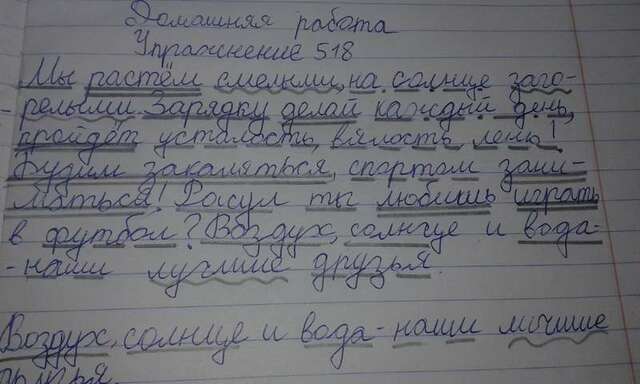 Домашняя работа
Упражнение 518
Мы растём смелыми, на солнце заго-
- релыми. Зарядку делай каждый день,
пройдёт усталость, вялость, лень!
Будим закаляться, спортом зани-
маться! Расул ты любишь играть
в футбол? Воздух, солнце и вода-
-наши лучшие друзья.
Воздух, солнце и вода- наши лучшие
друзья.